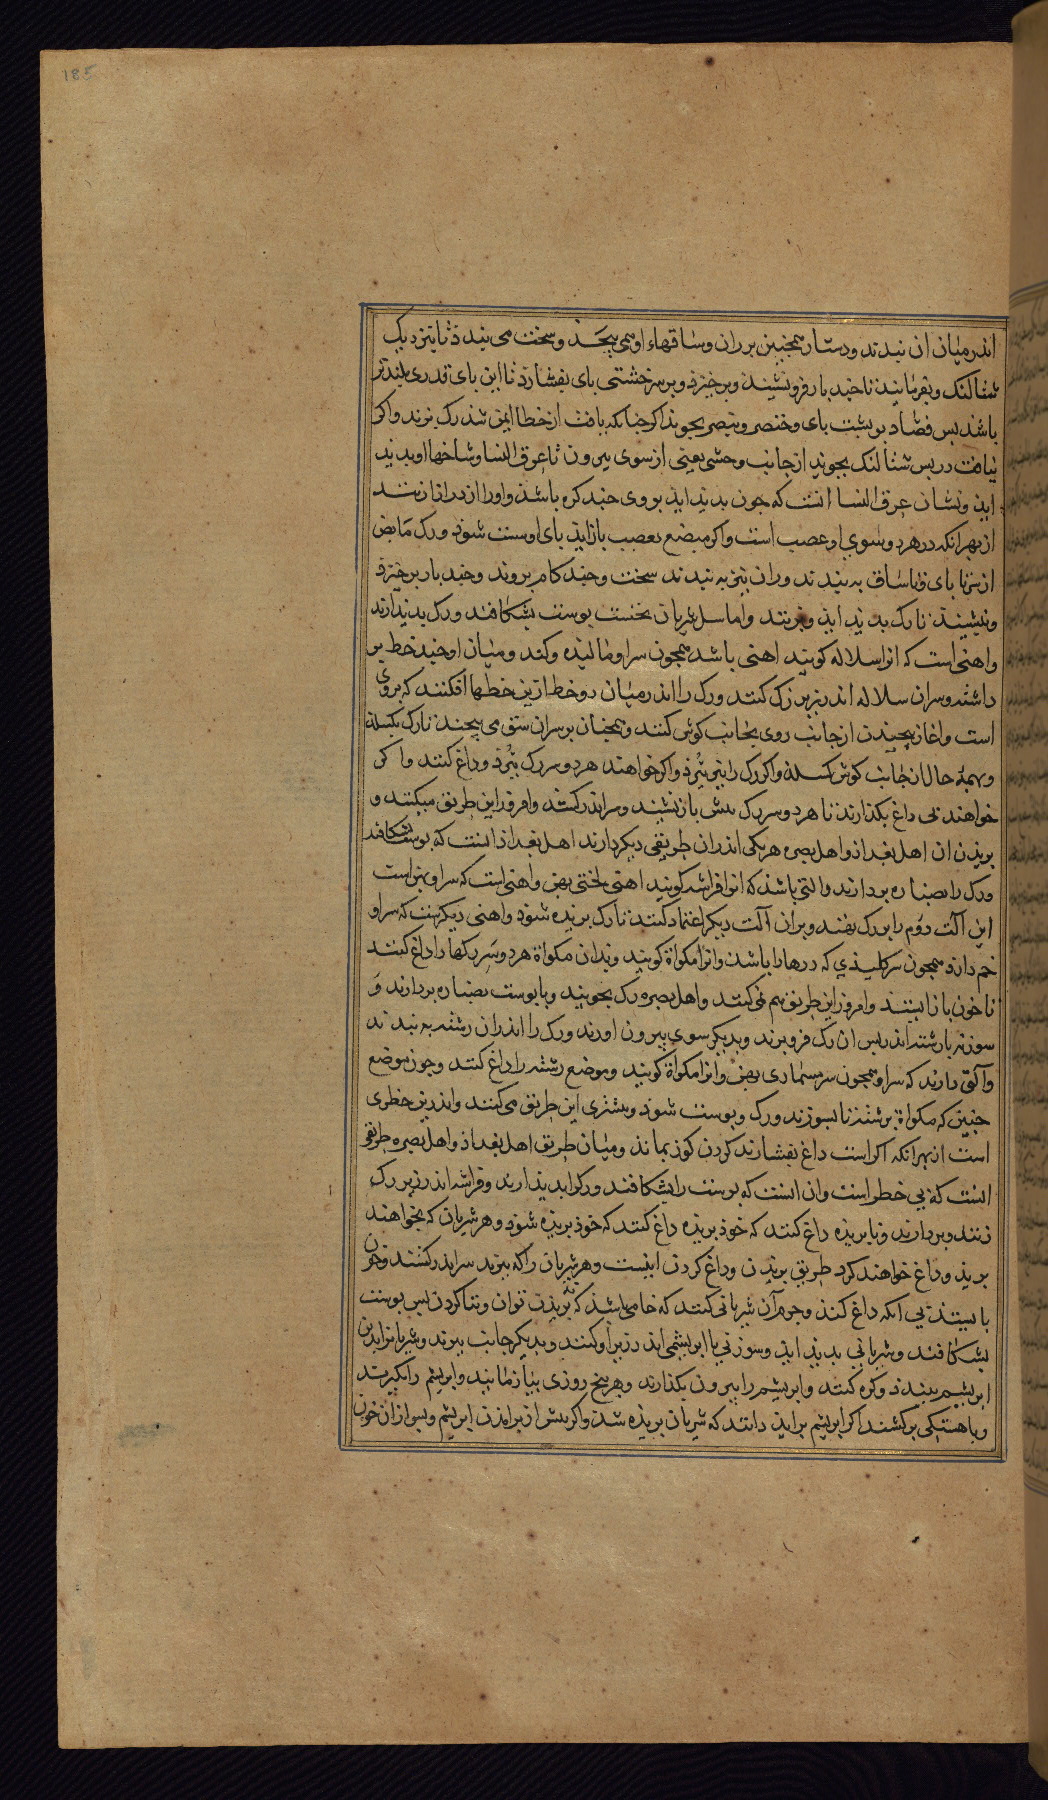 185
اندر میان ان بندند و دستار همچنین بر ران و ساقهاء او می پیچد و سخت می بندد تا بنزدیک
شتالنک و بفرمایند تا چند بار فرو نشیند و برخیزد و بر سر خشتی بای بفشارد تا این بای قدری بلندتر
باشد بس فصاد بر بشت بای و خنصر و بنصر بجوید اکر چنانکه یافت از خطا ایمن شد رک بزند و اکر
نیافت در بس شتالنک بجوید از جانب وحشی یعنی از سوی بیرون تا عرق النسا و شاخها او بدید
اید و نشان عرق النسا انست که چون بدید اید بر وی چند کره باشد و او را از درازا زنند
از بهر انکه در هر دو سوی او عصب است و اکر مبضع بعصب باز اید بای او سست شود و رک مابض
از بن بای و تا ساق به بندند و ران نیز به بندند سخت و چند کام بروند و چند بار برخیزد
و بنشیند تا رک بدید اید و بزنند و اما سل شریان نخست بوست بشکافند و رک بدید ارند
و اهنی است که انرا سلاله کویند اهنی باشد همچون سر او مالیده و کند و میان او چند خط بر
داشته و سر ان سلاله اندر زیر رک کنند و رک را اندر میان دو خط ازین خطها افکنند که بر وی
است و اغاز پیچیدن از جانب روی بجانب کوش کنند و همچنان بر سر ان ستق می پیچند تا رک بکسلد
و بهمه حال از جانب کوش کسلد و اکر رک را نیز ببرد و اکر خواهند هر دو سر رک ببرد و داغ کنند و اکر
خواهند بی داغ بکذارند تا هر دو سر رک بس باز نشیند و سر اندر کشد و امروز این طریق میکنند و
بریدن ان اهل بغداد و اهل بصره هر یکی اندران طریقی دیکر دارند اهل بغداد انست که بوست بشکافند
و رک را بصناره بردارند و التی باشد که انرا فراشه کویند اهنی لختی بهن و اهنی است که سر او تیز است
این الت دوم را بر رک نهند و بران الت دیکر اعتماد کنند تا رک بریده شود و اهنی دیکر هست که سر او
خم دارد همچون سر کلیدی که درها را باشد و انرا مکواة کویند و بدان مکواة هر دو سر رکها را داغ کنند
تا خون باز ایستد و امروز این طریق هم نمی کنند و اهل بصره رک بجویند و با بوست بصناره بردارند و
سوزنی با رشته اندر بس ان رک فرو برند و بدیکر سوی بیرون اورند و رک را اندران رشته به بندند
و التی دارند که سر او همچون سر مسماری بهن و انرا مکواة کویند و موضع رشته را داغ کنند و چون موضع
چنین که مکواة برشته تا بسوزند و رک و بوست شود و بیشتری این طریق می کنند و اندرین خطری
است از بهر انکه اکر است داغ بفشارند کردن کوز بماند و میان طریق اهل بغداد و اهل بصره طریقی
انست که بی خطر است و ان انست که بوست را بشکافند و رک را بدید ارند و فراشه اندر زیر رک
زنند و بردارند و نا بریده داغ کنند که خود بریده داغ کنند که خود بریده شود و هر شریان که بخواهند
برید و داغ خواهند کرد طریق بریدن و داغ کردن اینست و هر شریان را که ببرند سر اندر کشند و خون
بایستد بی انکه داغ کنند و جز آن شریانی کنند که خامی باشد که بریدن توان و تنا کردن بس بوست
بشکافند و شریانی بدید اید و سوزنی با ابریشمی اندر زیر او کنند و بدیکر جانب ببرند و شریانرا بدان
ابریشم ببندند و کره کنند و ابریشم را بیرون بکذارند و هر پنج روزی بیازمایند و ابریشم را بکیرند
و باهستکی برکشند اکر ابریشم براید دانند که شریان بریده شد و اکر بیش از برامدن ابریشم و بس از ان خون